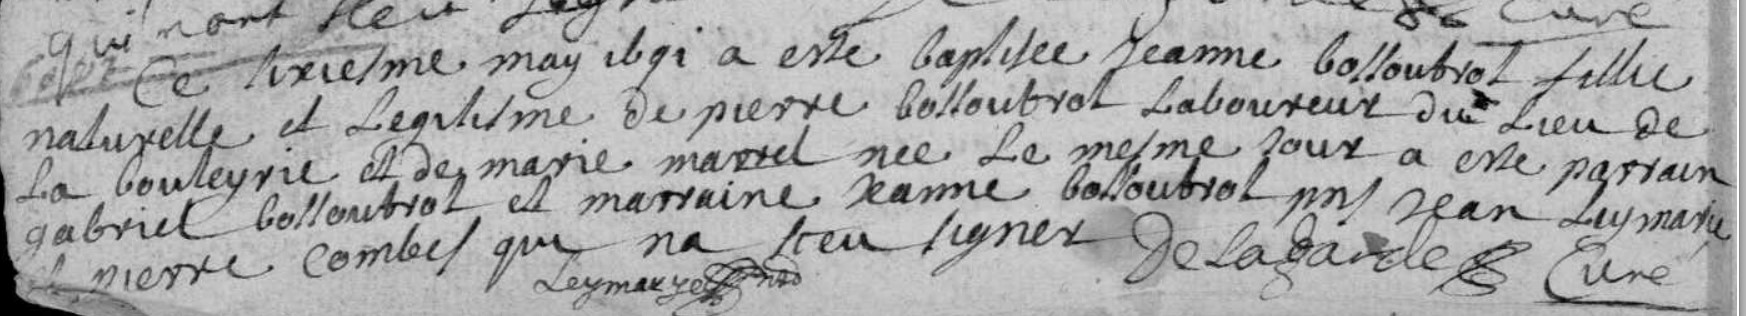 qui nont sceu Cure
Ce sixiesme may 1691 a este baptisee Jeanne bossoutrot fillie
naturelle et Legitisme de pierre bossoutrot Laboureur du Lieu de
La bouleyrie et de marie martel nee Le mesme Jour a este parrain
gabriel bossoutrot et marraine Jeanne bossoutrot pns Jean Leymarie
et pierre combes qui na sceu signer De Lagarde Cure
Leymarye